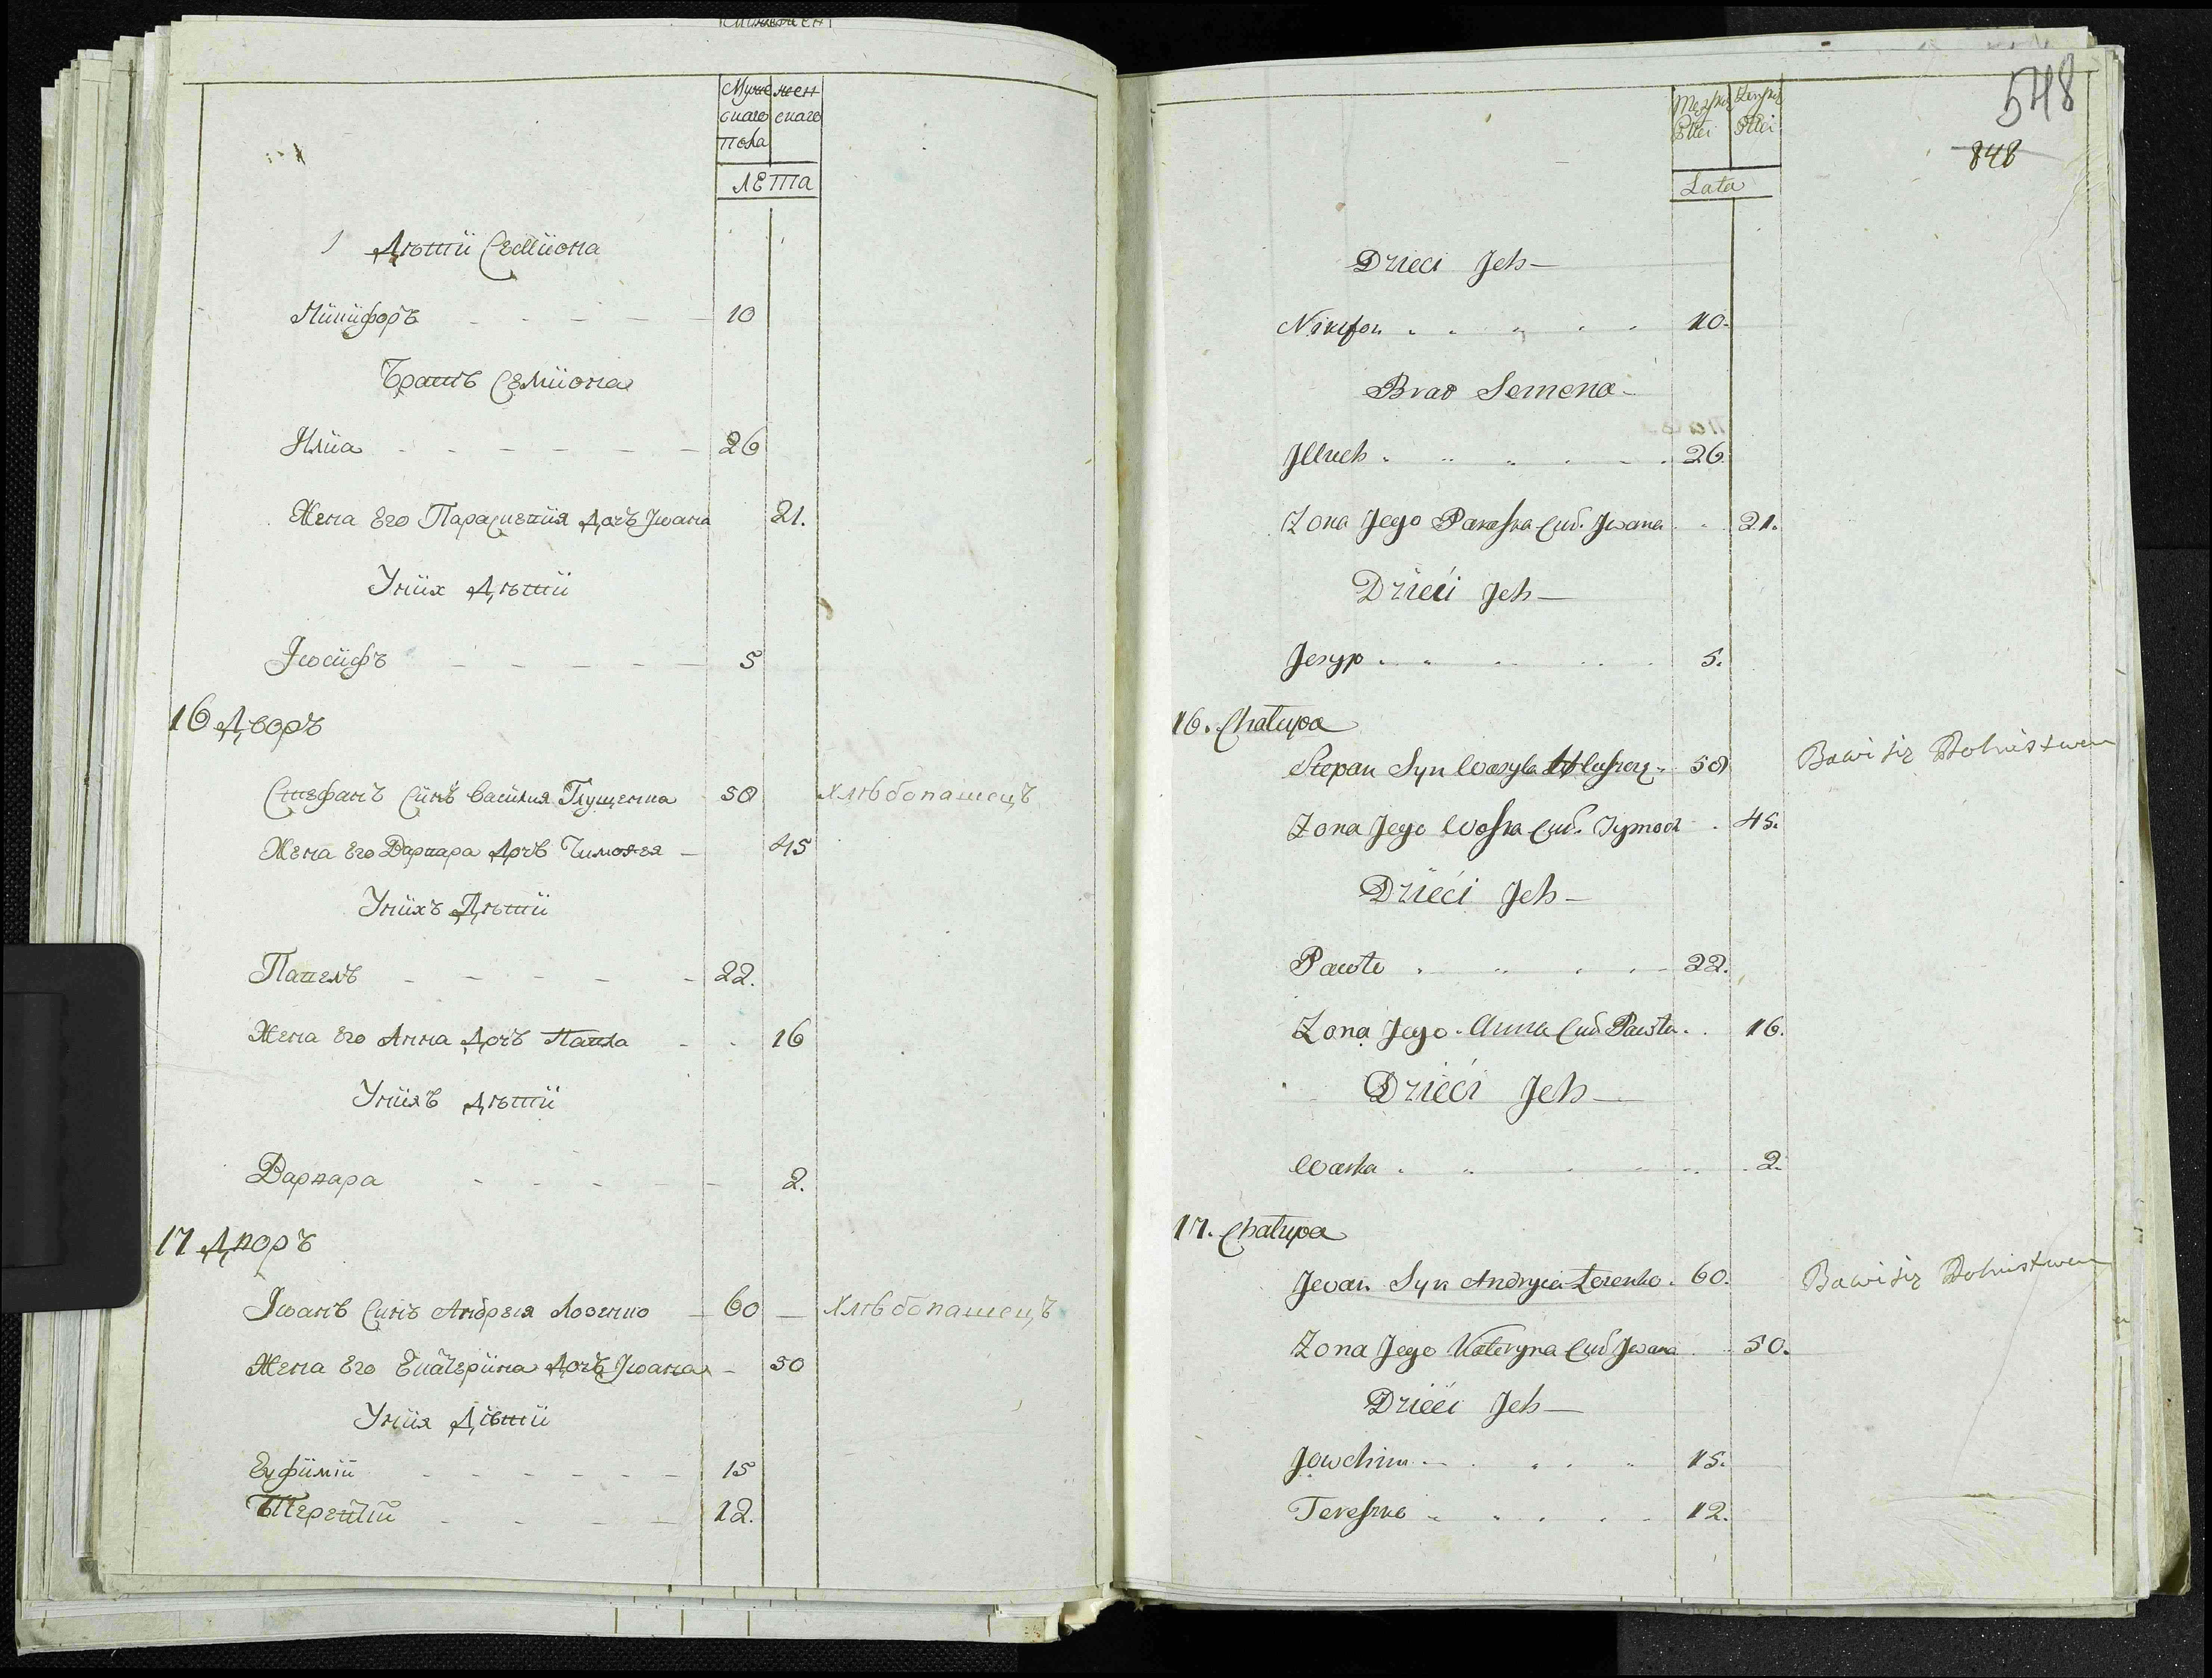 Мужескаго Пола
Женскаго
ЛЕТА
Дѣтїи Семїона
Нїкїфоръ 10
Братъ Семїона
Илїа 26
Жена Его Параскевїя Дочъ Іwана 21.
Унїх Дѣтїи
Іwсїфъ 5
16 Дворъ
Стефанъ Синъ Василия Глущенка 50 Хлѣбопашецъ
Жена Его Варвара Дочъ Тимоѳея 45
Унїхъ Дѣтїи
Павелъ 22.
Жена Его Анна Дочъ Павла 16
Унїхъ Дѣтїи
Варвара 2.
17 Дворъ
Іwанъ Синъ Андрея Лозенко 60 Хлѣбопашецъ
Жена Его Екатерїна Дочъ Іwана 50
Унїх Дѣтїи
Еуфїмїй 15
Терентїй 12.
548
848
Męzkiej Płci
Żeńskiej Płci
Lata
Dzieci Jch
Nikifor 10.
Brat Semena
Jlluch 26.
Zona Jego Paraska Cur. Jwana 21.
Dzieci Jch
Jesyp 5.
16. Chałupa
Stepan Syn Wasyla 50 Bawi się Rolnistwem
Zona Jego Waska Cur. Tymocha 45.
Dzieci Jch
Pawło 22.
Zona Jego Anna Cur Pawła 16.
Dzieci Jch
Waska 2.
17. Chałupa
Jwan Syn Andryia Lozenko 60. Bawi się Rolnistwem
Zona Jego Kateryna Cur Jwana 50.
Dzieci Jch
Jowchim 15.
Tereszko 12.